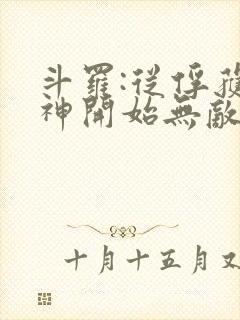 斗羅:從俘獲
神開始無敵
十月十五月又